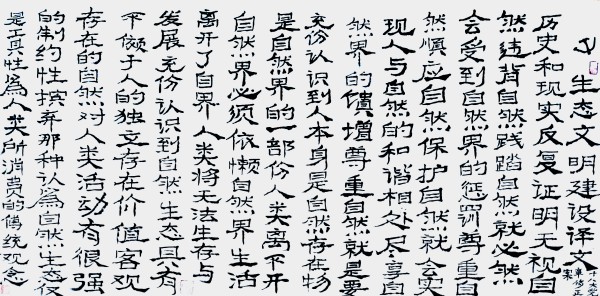 生态文明建设译文
历史和现实反复证明无视自
然违背自然践踏自然就必然
会受到自然界的惩罚尊重自
然慎应自然保护自然就会实
现人与自然的和谐相处尽享自
然界的馈增尊重自然就是要
充份认识到人本身是自然存在物
是自然界的一部份人类离不开
自然界必须依懒自然界生活
离开了自界人类将无法生存与
发展充份认识到自然生态具有
不倾于人的独立存在价值客观
存在的自然对人类活动有很强
的制约性摈弃那种认為自然生态仅
是工具性為人类所消费的傳统观念